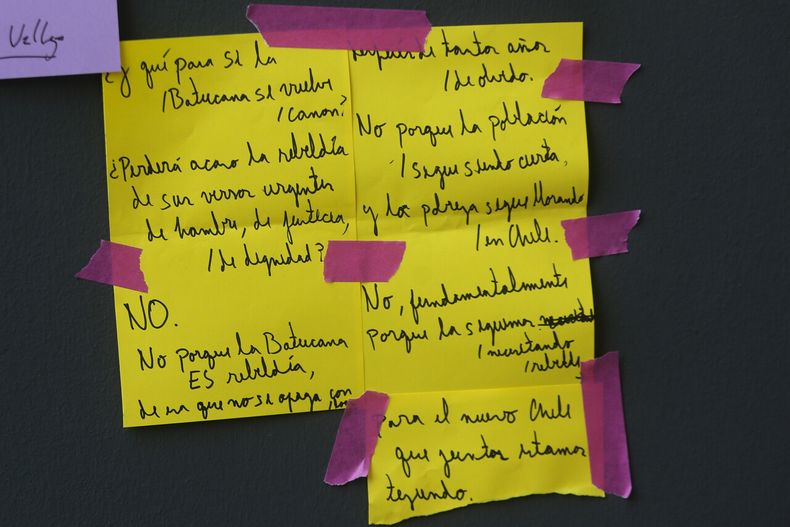 Vallejo
¿Y qué pasa si la
/Batucana se vuelve
/canon?
¿Perderá acaso la rebeldía
de sus versos urgentes
de hambre, de justicia,
/de dignidad?
NO.
No porque la Batucana
ES rebeldía,
de esa que no se apaga con
los
después de tantos años
/de olvido.
No porque la población
/sigue siendo cierta,
y los pobreza sigue llorando
/en Chile.
No, fundamentalmente
porque la seguimos
/necesitando
/rebelde
para el nuevo Chile
que juntos estamos
tejiendo.